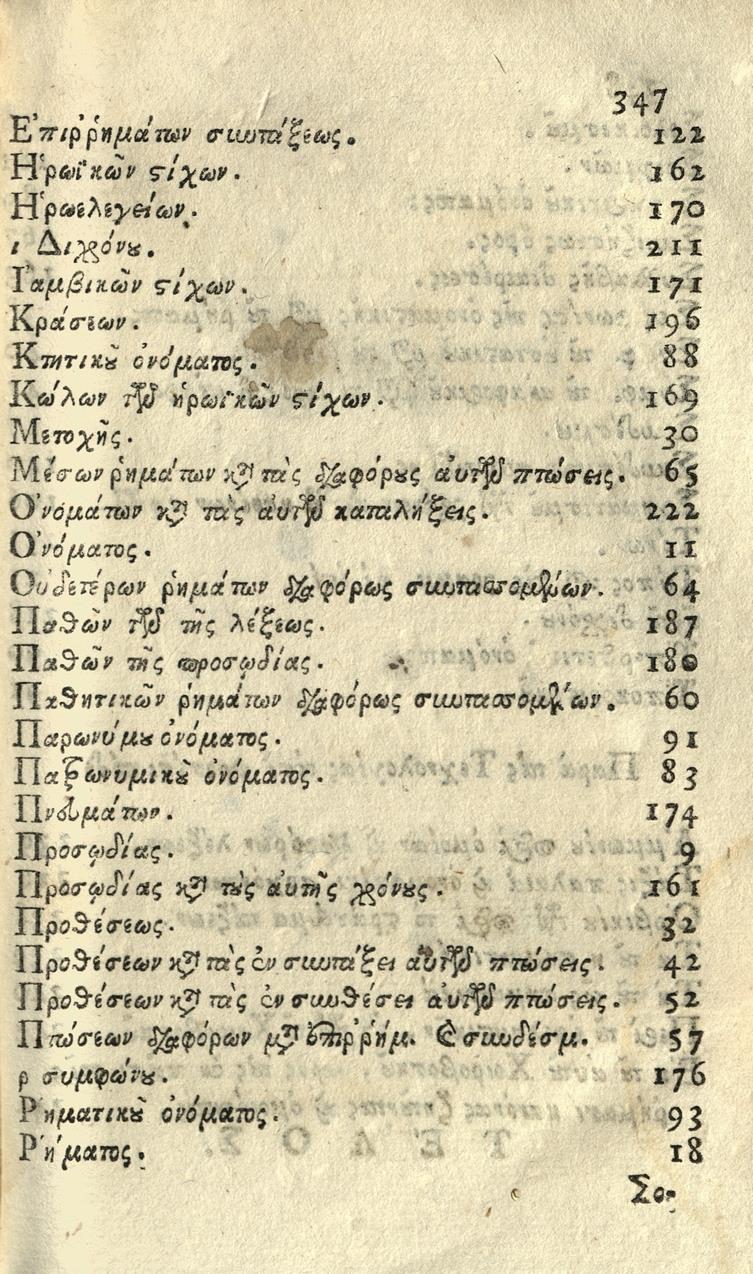 347
Ἐπιῤῥημάτων συντάξεως. 122
Ἡρωϊκῶν ϛίχων. 162
Ἡρωελεγείων. 170
ι Διχρόνȣ. 211
Ἰαμβικῶν ϛίχων. 171
Κράσεων. 196
Κτητικȣ͂ ὀνόματος. 88
Κώλων τῶν ἡρωϊκῶν ϛίχων. 169
Μετοχῆς. 30
Μέσων ῥημάτων κατὰ τὰς διαφόρȣς αὐτῶν πτώσεις. 65
Ὀνομάτων κατὰ τὰς αὐτῶν καταλήξεις. 222
Ὀνόματος. 11
Οὐδετέρων ῥημάτων διαφόρως συντασσομένων. 64
Παθῶν τῶν τῆς λέξεως. 187
Παθῶν τῆς προσῳδίας. 180
Παθητικῶν ῥημάτων διαφόρως συντασσομένων. 60
Παρωνύμȣ ὀνόματος. 91
Πατρωνυμικȣ͂ ὀνόματος. 83
Πνευμάτων. 174
Προσῳδίας. 9
Προσῳδίας κατὰ τȣ̀ς αὐτῆς χρόνȣς. 161
Προθέσεως. 32
Προθέσεων κατὰ τὰς ἐν συντάξει αὐτῶν πτώσεις. 42
Προθέσεων κατὰ τὰς ἐν συνθέσει αὐτῶν πτώσεις. 52
Πτώσεων διαφόρων μετὰ ἐπιῤῥήμ. καὶ συνδέσμ. 57
ρ συμφώνȣ. 176
Ῥηματικȣ͂ ὀνόματος. 93
Ῥήματος. 18
Σο-